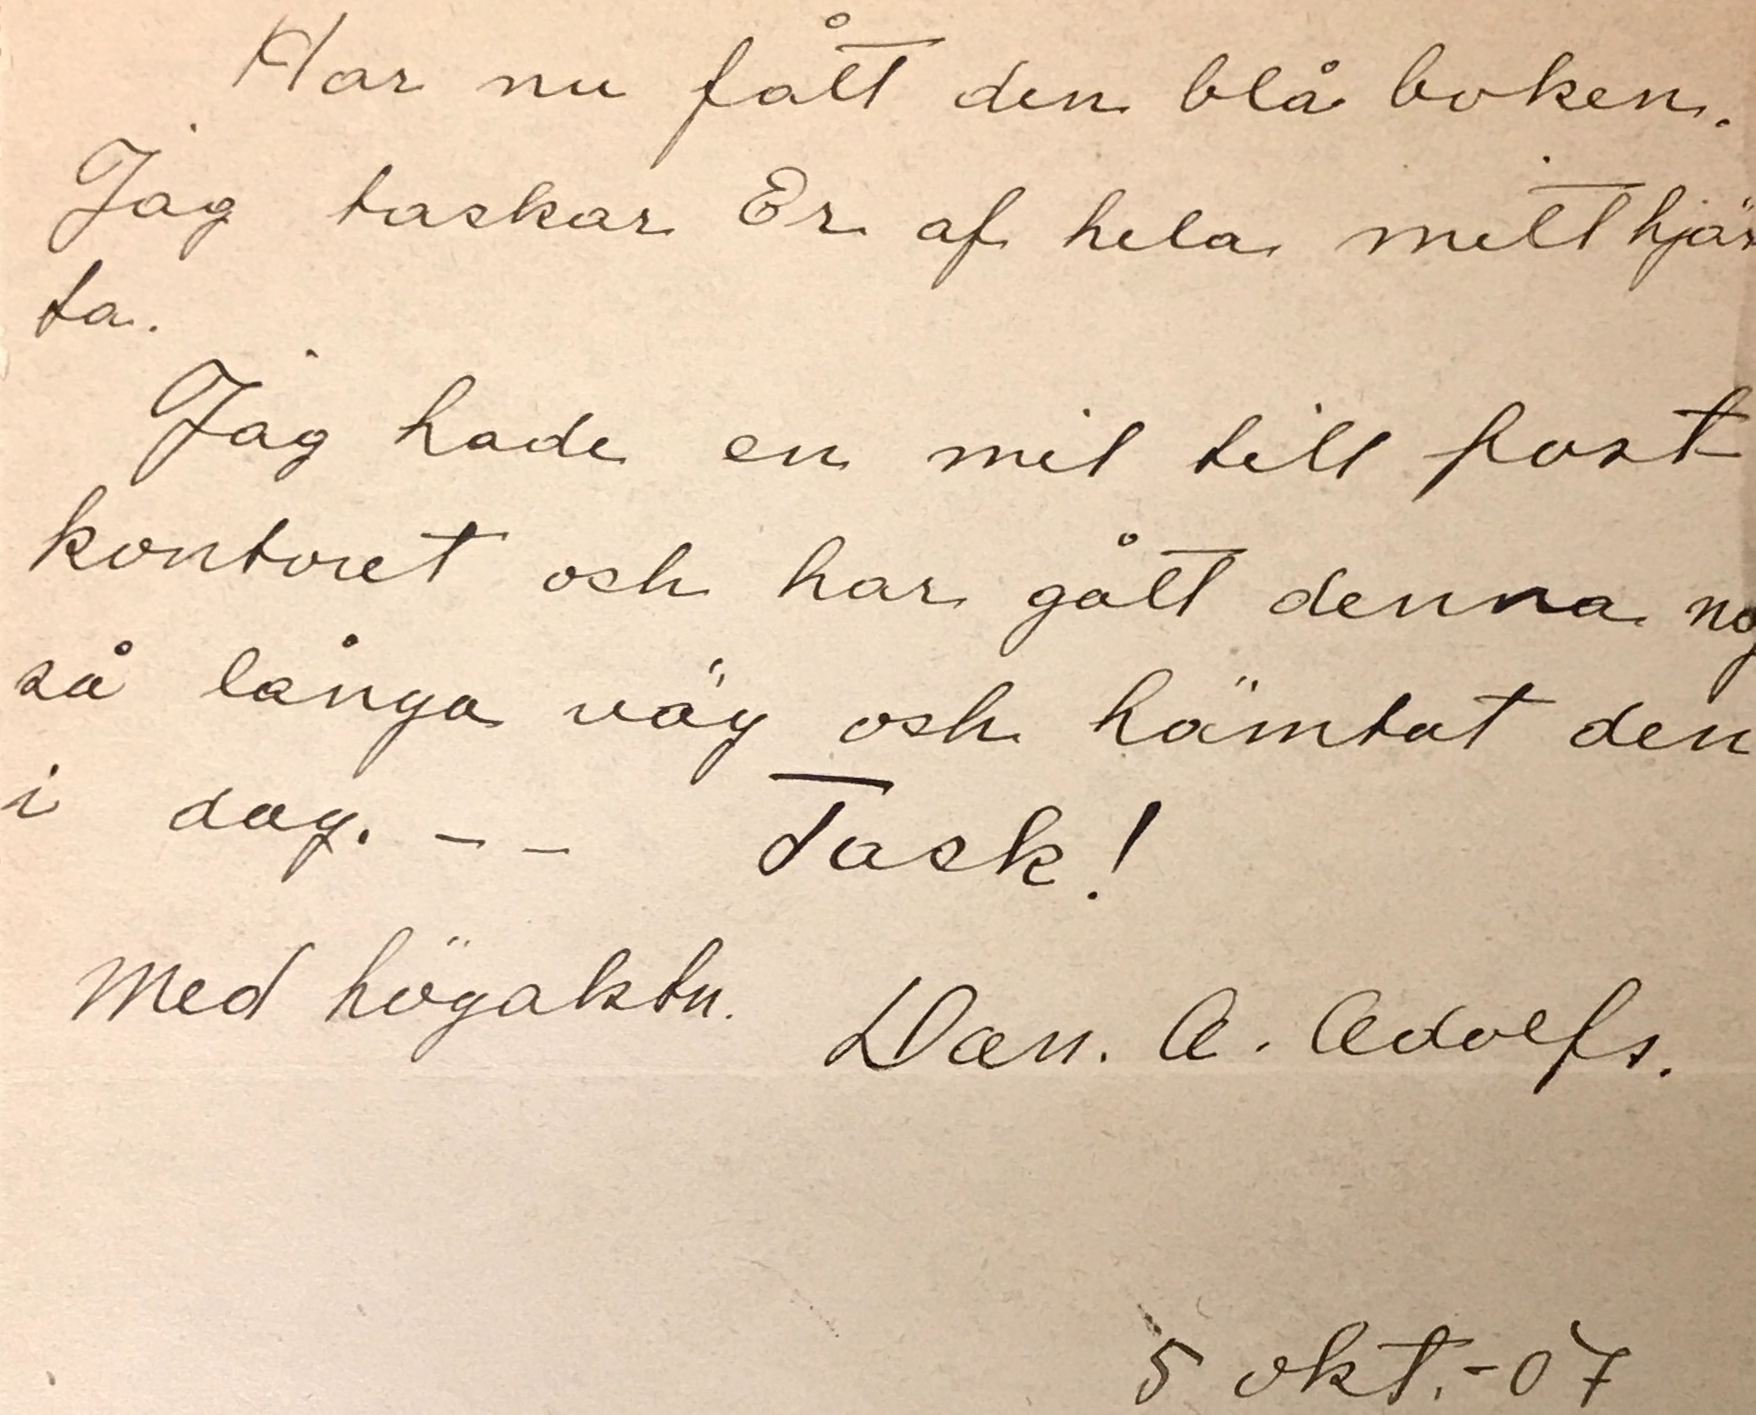 Har nu fått den blå boken.
Jag tackar Er af hela mitt hjär
ta.
Jag hade en mil till post
kontoret och har gått denna
så långa väg och hämtat den
i dag. — — Tack!
Med högaktn. Dan. A. Adolfs.
5 okt. -07